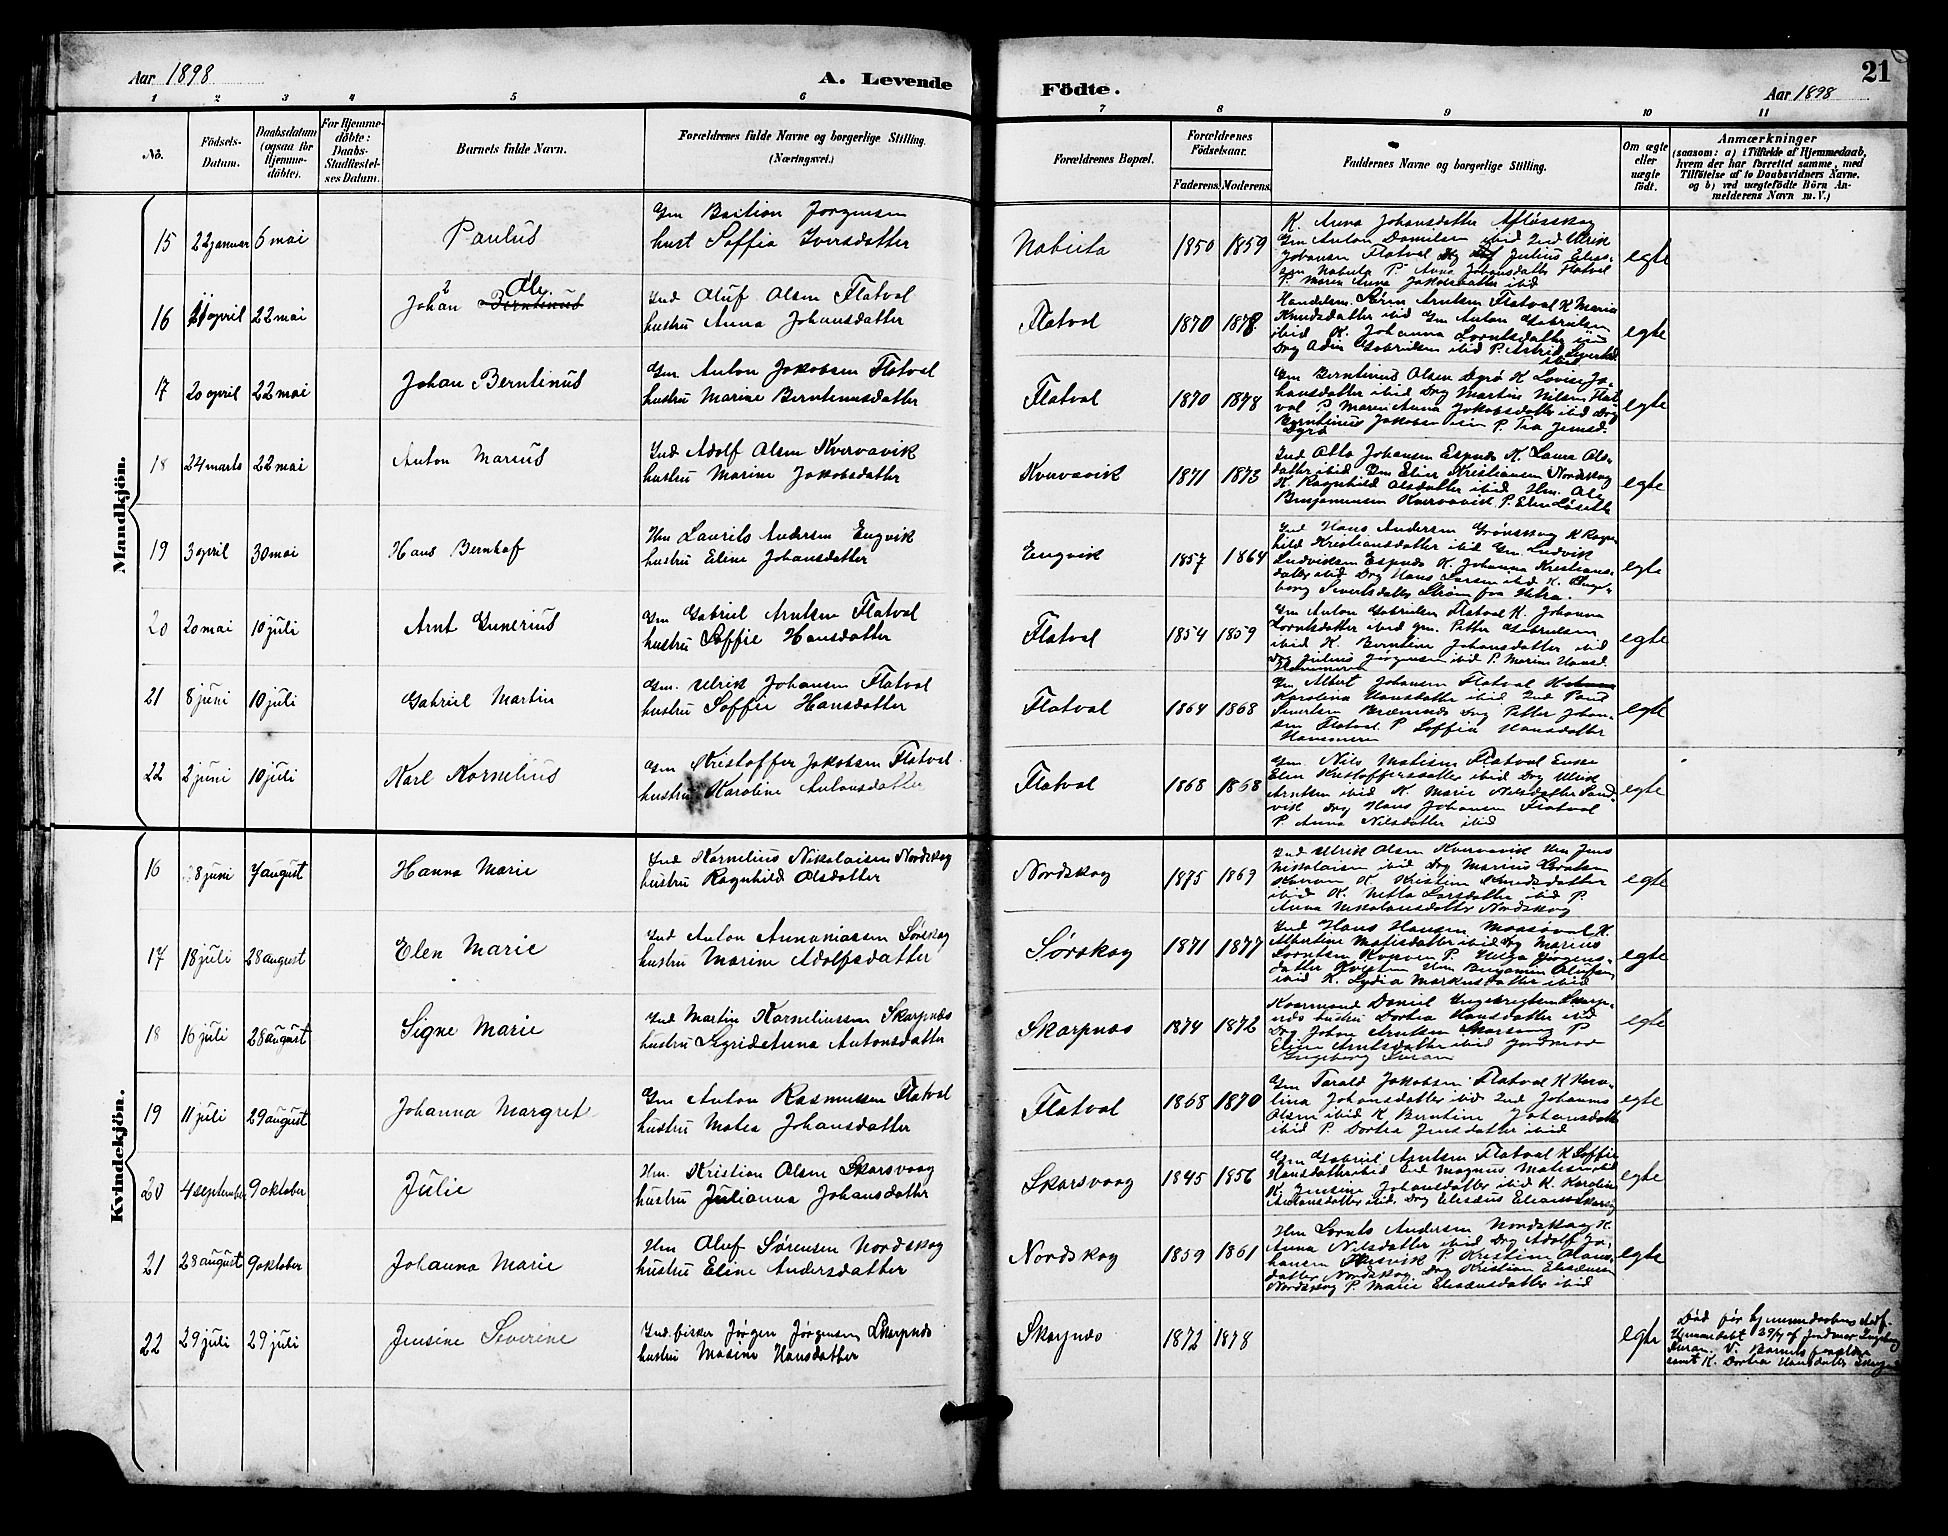 Aar 1898
A. Levende Födte.
21
Aar 1898
1 2 3 4 5 6 7 8 9 10 11
No.
Födsels-Datum.
Daabsdatum (ogsaa for Hjemme-döbte).
For Hjemme-döbte: Daabs-Stadfæstel-ses Datum.
Barnets fulde Navn.
Forældrenes fulde Navne og borgerlige Stilling. (Næringsvei.)
Forældrenes Bopæl.
Forældrenes Födselsaar.
Faderens. Moderens.
Faddernes Navne og borgerlige Stilling.
Om ægte eller uægte født.
Anmærkninger
(saasom: a) i Tilfælde af Hjemmedaab,
hvem der har forrettet samme, med
Tilföielse af to Daabsvidners Navne.
og b) ved uægtefödte Börn An-
melderens Navn m. V.)
Mandkjön.
15 22 januar 6 mai Paulus
Gm Bastian Jørgensen
hust Soffia Iversdatter
Nabeita 1850 1859 egte
K. Anna Johansdatter
Gm Anton Danielsen ibid Ind Ulrik
Johansen Flatval Drg Julius Elias-
sen Nabeita P. Anna Johansdatter Flatval
P. Maren Anna Jakobsdatter ibid
16 11 april 22 mai Johan Ole. Berntinus
Ind Oluf Olsen Flatval
hustru Anna Johansdatter
Flatval 1870 1878 egte
Handelsm. Søren Arntsen Flatval K Maria
Knudsdatter ibid Gm Anton Gabrielsen
ibid K. Johanna Lorntsdatter ibid
Drg Adin Gabrielsen ibid P. Astrid Sivertsd.
ibid
17 20 april 22 mai Johan Berntinus
Gm Anton Jakobsen Flatval
hustru Marine Berntinusdatter
Flatval 1870 1878 egte
Gm Berntinus Olsen Dyrø K Lovise Jo-
hansdatter ibid Drg Martin Nilsen Flat
val P. Maren Anna Jakobsdatter ibid Drg
Berntinus Jakobsen P. Jensd.
Dyrø
18 24 marts 22 mai Anton Marius
Ind Adolf Olsen Kvervavik
hustru Marine Jakobsdatter
Kvervavik 1871 1873 egte
Ind Otto Johansen Espnes K. Laura Ols-
datter ibid Gm Elier Kristiansen Nordskag
K. Ragnhild Olsdatter ibid Hm. Ole
Benjaminsen Kvervavik P. Elen
19 3 april 30 mai Hans Bernhof
Hm Laurits Andersen Engvik
hustru Eline Johansdatter
Engvik 1857 1864 egte
Ind Hans Andersen Grønskag K Ragn
hild Kristiansdatter ibid Gm. Ludvik
Ludviksen Espnes K. Johanna Kristians-
datter ibid Drg Hans Larsen ibid K. Inge-
borg Sivertsdatter Strøm fra Hitra.
20 20 mai 10 juli Arnt Gunerius
Gm Gabriel Arntsen Flatval
hustru Soffie Hansdatter
Flatval 1854 1859 egte
Gm Anton Gabrielsen Flatval K. Johanna
Lorntsdatter ibid gm. Petter Gabrielsen
ibid K. Berntine Johansdatter ibid
Drg Julius Jørgensen ibid P. Marie Hansd.
21 8 juni 10 juli Gabriel Martin
Gm. Ulrik Johansen Flatval
hustru Soffie Hansdatter
Flatval 1864 1868 egte
Gm Albert Johansen Flatval
Karolina Hansdatter ibid Ind Paul
Sivertsen Drg Petter Johan-
sen Flatval P. Soffia Hansdatter
22 2 juni 10 juli Karl Kornelius
Gm Kristoffer Jakobsen Flatval
hustru Karoline Antonsdatter
Flatval 1868 1868 egte
Gm. Nils Matisen Flatval Enke
Elen Kristoffersdatter ibid Drg Ulrik
Arntsen ibid K. Marie Nilsdatter Sand-
vik Drg Hans Johansen Flatval
P. Anna Nilsdatter ibid
Kvindekjön.
16 28 juni 7 august Hanna Marie
Ind Kornelius Nikolaisen Nordskag
hustru Ragnhild Olsdatter
Nordskag 1875 1869 egte
Ind Ulrik Olsen Kvervavik Hm Jens
Nikolaisen ibid Drg Marius Lorntsen
Kverven K. Kristine Knudsdatter
ibid K. Netta Larsdatter ibid P.
Anna Nikolaisdatter Nordskag
17 18 juli 28 august Elen Marie
Ind Anton Annaniassen Sørskag
hustru Marine Adolfsdatter
Sørskag 1871 1877 egte
Ind Hans Hansen Maasøval K.
Albertine Matisdatter ibid Drg Marius
Lorntsen Kverven P. Helga Jørgens-
datter Kvisten Hm Benjamin Olufsen
ibid K. Lydia Markusdatter ibid
18 16 juli 28 august Signe Marie
Ind Martin Korneliussen Skarpnes
hustru Syrid Anna Antonsdatter
Skarpnes 1874 1872 egte
Kaarmand Daniel Ingebrigtsen Skarp-
nes hustru Dortea Hansdatter ibid
Drg Johan Arntsen Skarsvaag P
Eline Arntsdatter ibid Jordmor
Ingeborg Furan
19 11 juli 29 august Johanna Margret
Gm Anton Rasmussen Flatval
hustru Matea Johansdatter
Flatval 1868 1870 egte
Gm Tarald Jakobsen Flatval K Karo-
lina Johansdatter ibid Ind Johannes
Olsen ibid K Berntine Johansdatter
ibid P. Dortea Jensdatter ibid
20 4 september 9 oktober Julie
Hm. Kristian Olsen Skarsvaag
hustru Julianna Johansdatter
Skarsvaag 1845 1856 egte
Gm Gabriel Arntsen Flatval K Soffie
Hansdatter ibid Ind Magnus Matisen ibid
K. Jensine Johansdatter ibid K. Karoline
Antonsdatter ibid. Drg Eliseus Eliassen Skarsvg
21 28 august 9 oktober Johanna Marie
Hm Oluf Sørensen Nordskag
hustru Eline Andersdatter
Nordskag 1859 1861 egte
Hm Lornts Andersen Nordskag K.
Anna Nilsdatter ibid Drg Adolf Jo-
hansen P. Kristine Olaus-
datter Nordskag Drg Kristian Eliseusen
Nordskag P. Marie Eliseusdatter ibid
22 29 juli 29 juli Jensine Severine
Ind. fisker Jørgen Jørgensen Skarpnes
hustru Masine Hansdatter
Skarpnes 1872 1878 egte
Død før hjemmedaabens stadf.
Hjemmedøbt 29/7 af Jordmor Ingeborg
Furan. V. Barnets forældre
samt K. Dortea Hansdatter Skarpnes